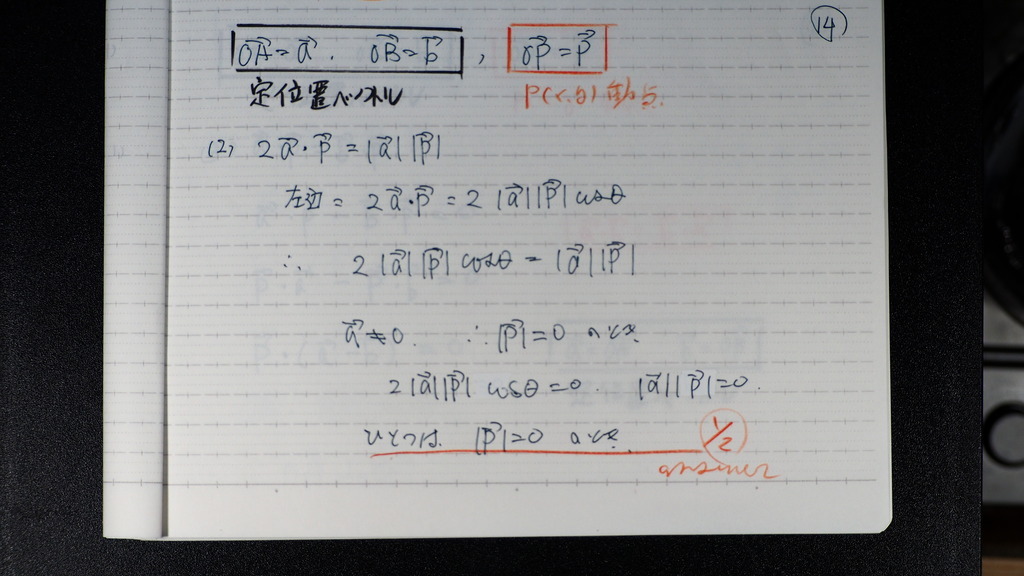 ⑭
OA→=a→. OB→=b→, OP→=p→
定位置ベクトル P(x,y) 動点.
(2) 2a→・p→=|a→||p→|
左辺=2a→・p→=2|a→||p→|cosθ
∴ 2|a→||p→|cosθ=|a→||p→|
a→≠0. ∴|p→|=0 のとき.
2|a→||p→|cosθ=0. |a→||p→|=0.
ひとつは. |p→|=0 のとき. 1/2
answer